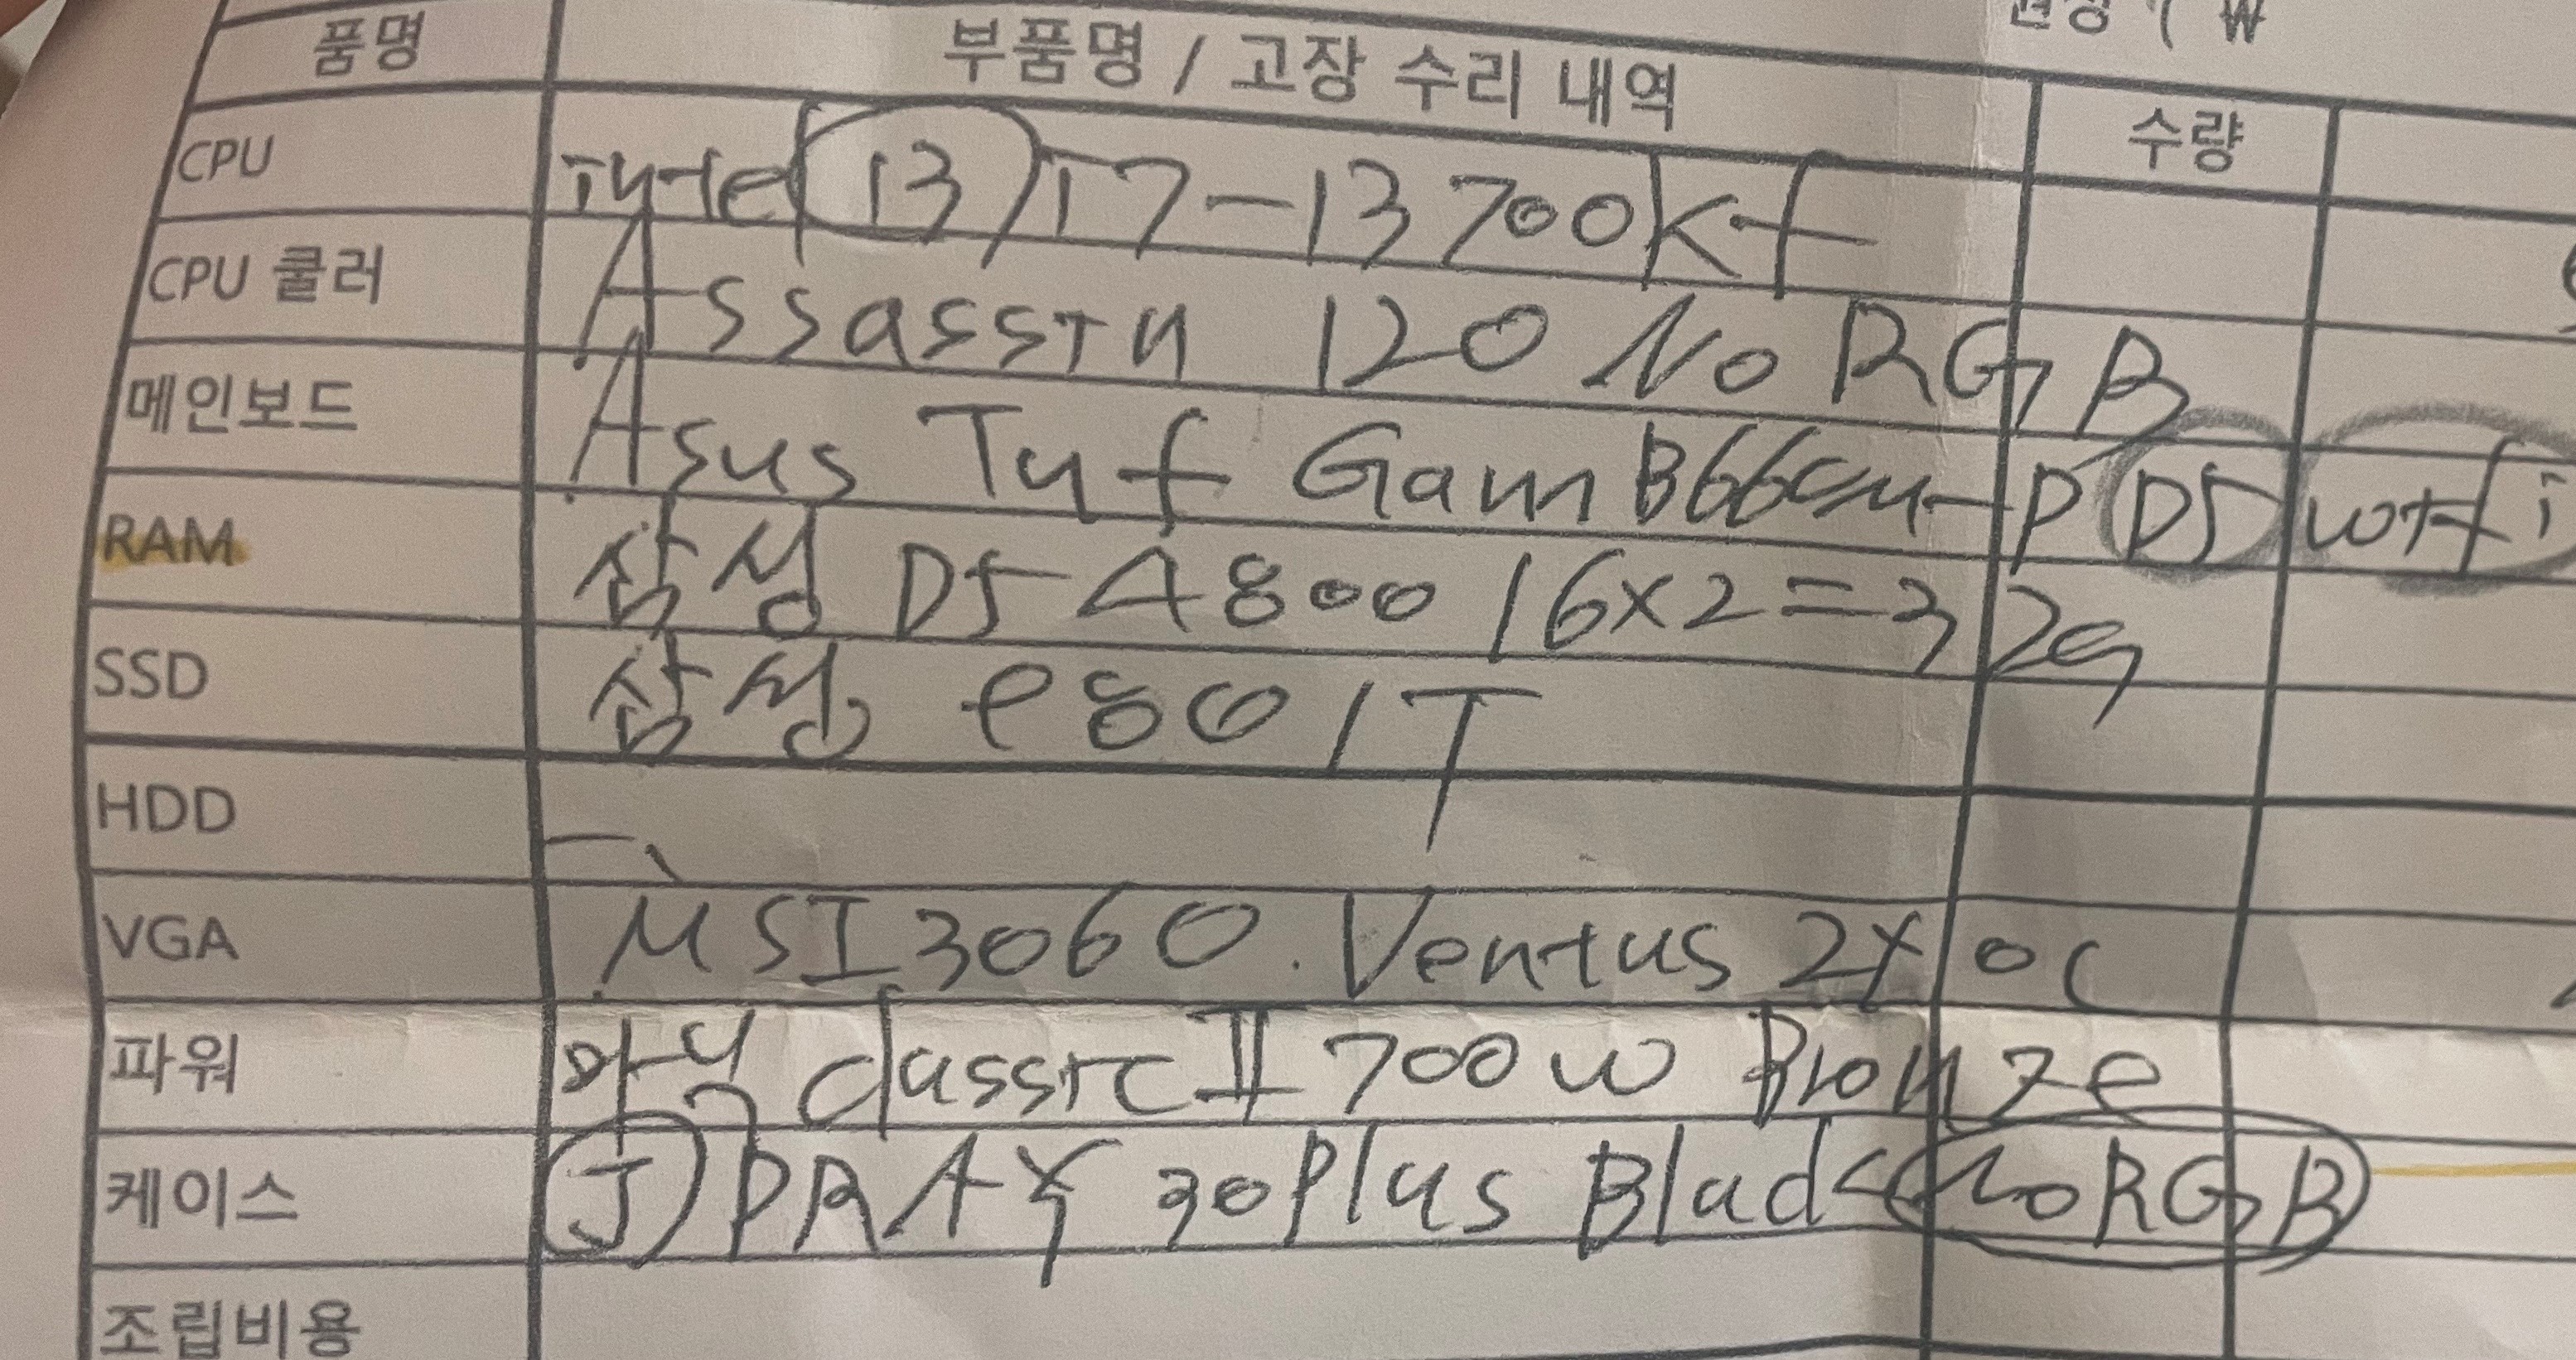 품명 부품명 / 고장 수리 내역 수량
CPU Intel 13 I7-13700Kf
CPU 쿨러 Assassin 120 No RGB
메인보드 Asus Tuf Gam B660m-P D5 wifi
RAM 삼성 D5 4800 16x2=32g
SSD 삼성 980 1T
HDD
VGA MSI 3060. Ventus 2X OC
파워 마닉 classic II 700W Bronze
케이스 J DRAX 30 Plus Blad No RGB
조립비용